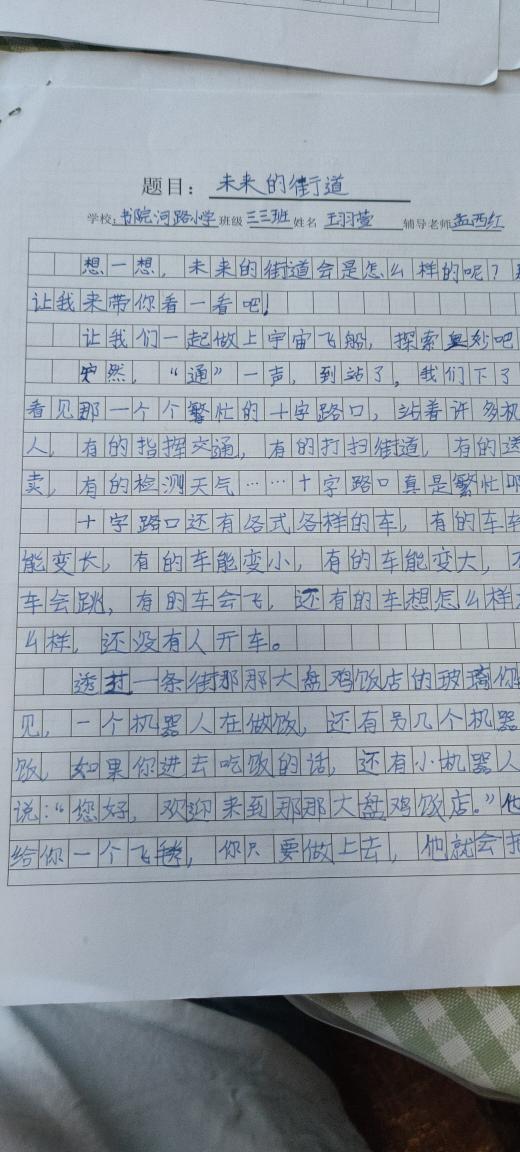 题目：未来的街道
学校：书院河路小学 班级 三三班 姓名 王羽萱 辅导老师 孟西红
想一想，未来的街道会是怎么样的呢？
让我来带你看一看吧！
让我们一起做上宇宙飞船，探索奥妙吧
突然，“通”一声，到站了，我们下了
看见那一个个繁忙的十字路口，站着许多机
人，有的指挥交通，有的打扫街道，有的送
卖，有的检测天气……十字路口真是繁忙啊
十字路口还有各式各样的车，有的车
能变长，有的车能变小，有的车能变大，
车会跳，有的车会飞，还有的车想怎么样
么样，还没有人开车。
透过一条街那那大盘鸡饭店的玻璃你
见，一个机器人在做饭，还有另几个机器
饭，如果你进去吃饭的话，还有小机器人
说：“您好，欢迎来到那那大盘鸡饭店。”他
给你一个飞毯，你只要做上去，他就会把